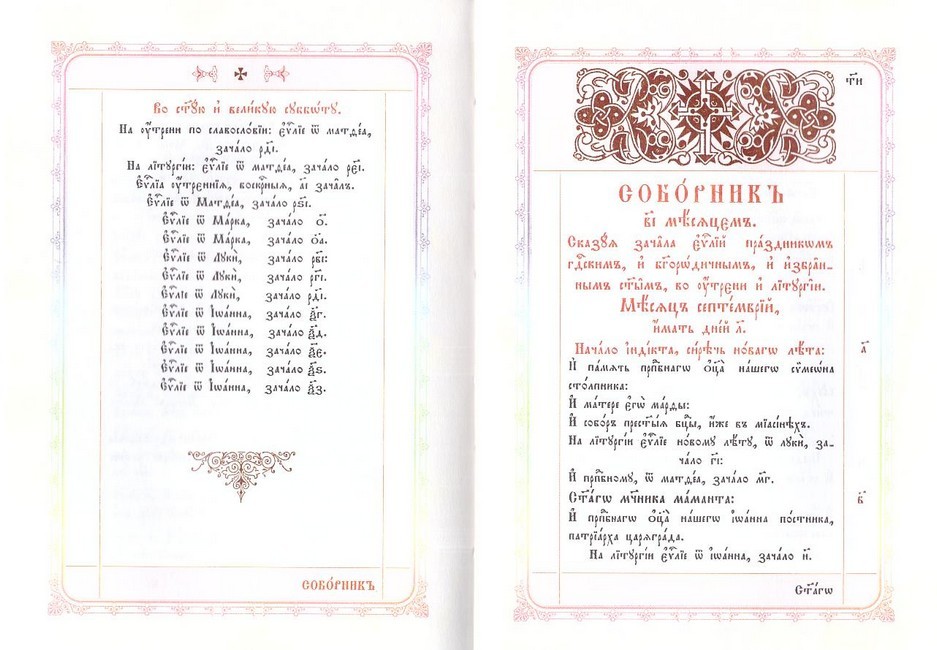 Во ст҃ꙋю и҆ вели́кꙋю сꙋббѡ́тꙋ.
На ᲂу҆́трени по славосло́вїи: є҆ѵⷢ҇лїе ѿ матѳе́а,
зача́ло рд҃і.
На лїтꙋргі́и: є҆ѵⷢ҇лїе ѿ матѳе́а, зача́ло рє҃і.
Є҆ѵⷢ҇лїа ᲂу҆́трєннїѧ, воскрⷭ҇ныѧ, а҃і зача̑лъ.
Є҆ѵⷢ҇лїе ѿ Матѳе́а, зача́ло рѕ҃і.
Є҆ѵⷢ҇лїе ѿ Ма́рка, зача́ло ѻ҃.
Є҆ѵⷢ҇лїе ѿ Ма́рка, зача́ло ѻ҃а.
Є҆ѵⷢ҇лїе ѿ Лꙋкѝ, зача́ло рв҃і:
Є҆ѵⷢ҇лїе ѿ Лꙋкѝ, зача́ло рг҃і.
Є҆ѵⷢ҇лїе ѿ Лꙋкѝ, зача́ло рд҃і.
Є҆ѵⷢ҇лїе ѿ І҆ѡа́нна, зача́ло ѯ҃г.
Є҆ѵⷢ҇лїе ѿ І҆ѡа́нна, зача́ло ѯ҃д.
Є҆ѵⷢ҇лїе ѿ І҆ѡа́нна, зача́ло ѯ҃є.
Є҆ѵⷢ҇лїе ѿ І҆ѡа́нна, зача́ло ѯ҃ѕ.
Є҆ѵⷢ҇лїе ѿ І҆ѡа́нна, зача́ло ѯ҃з.
СОБО́РНИКЪ
т҃и
СОБО́РНИКЪ
в҃і мѣ́сѧцемъ.
Сказꙋ́ѧ зача̑ла є҆ѵⷢ҇лїй пра́здникѡмъ
гдⷭ҇скимъ, и҆ бг҃оро́дичнымъ, и҆ и҆збра̑н-
нымъ ст҃ы̑мъ, во ᲂу҆́трени и҆ лїтꙋргі́и.
Мѣ́сѧцъ септе́мврїй,
и҆́мать дні́й л҃.
Нача́ло і҆ндї́кта, си́рѣчь но́вагѡ лѣ́та:
а҃
И҆ па́мѧть прпⷣбнагѡ ѻ҆ц҃а̀ на́шегѡ сѷмеѡ́на
сто́лпника:
И҆ ма́тере є҆гѡ̀ ма́рѳы:
И҆ собо́ръ прест҃ы́ѧ бцⷣы, и҆́же въ мїасі́нѣхъ.
На лїтꙋргі́и є҆ѵⷢ҇лїе но́вомꙋ лѣ́тꙋ, ѿ лꙋкѝ, за-
ча́ло г҃і:
И҆ прпⷣбномꙋ, ѿ матѳе́а, зача́ло м҃г.
Ст҃а́гѡ мч҃ника ма́манта:
в҃
И҆ прпⷣбнагѡ ѻ҆ц҃а̀ на́шегѡ і҆ѡа́нна по́стника,
патрїа́рха царѧгра́да.
На лїтꙋргі́и є҆ѵⷢ҇лїе ѿ і҆ѡа́нна, зача́ло и҃.
Ст҃а́гѡ